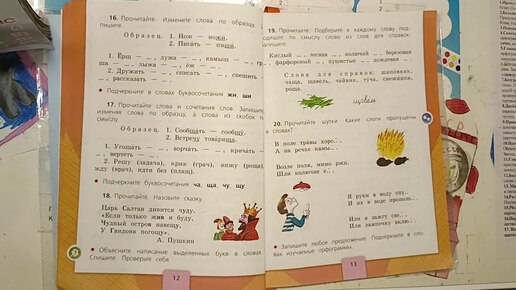 16. Прочитайте. Измените слова по образцу,
пишите.
Образец. 1. Нож — ножи.
2. Писать — пиши.
1. Ёрш — ..., лужа — ..., камыш — ...,
ша — ..., лыжа — ..., ёж — ...
2. Дружить — ..., списать — ..., спешить
..., рассказать — ...
Подчеркните в словах буквосочетания жи, ши.
17. Прочитайте слова и сочетания слов. Запишите,
изменяя слова по образцу, а слова из скобок по
смыслу.
Образец. 1. Сообщать — сообщу.
2. Встречу товарища.
1. Угощать — ..., ворчать — ..., кричать — ...,
..., вертеть — ...
2. Решу (задача), крик (грач), вижу (роща),
жду (врач), идти без (плащ).
Подчеркните буквосочетания ча, ща, чу, щу.
18. Прочитайте. Назовите сказку.
Царь Салтан дивится чуду.
«Если только жив я буду,
Чудный остров навещу,
У Гвидона погощу».
А. Пушкин
Объясните написание выделенных букв в словах.
Спишите. Проверьте себя.
12
19. Прочитайте. Подберите к каждому слову под-
ходящее по смыслу слово из слов для справок.
запишите.
Кислый ..., лесная ..., колючий ..., берёзовая
..., фарфоровый ..., пушистые ..., дождевая ...
Слова для справок: шиповник,
чаща, щавель, чайник, туча, снежинки,
роща.
щавель
20. Прочитайте шутки. Какие слоги пропущены
в словах?
В поле травы хоро..,
А на речке камы.. .
Возле поля, мимо ржи,
Шли колючие е.. .
Я руки в воду опу..
И их в воде прополо.. .
Или я зажгу све..,
Или лампочку вклю.. .
Запишите любое предложение. Подчеркните в сло-
вах изучаемые орфограммы.
13